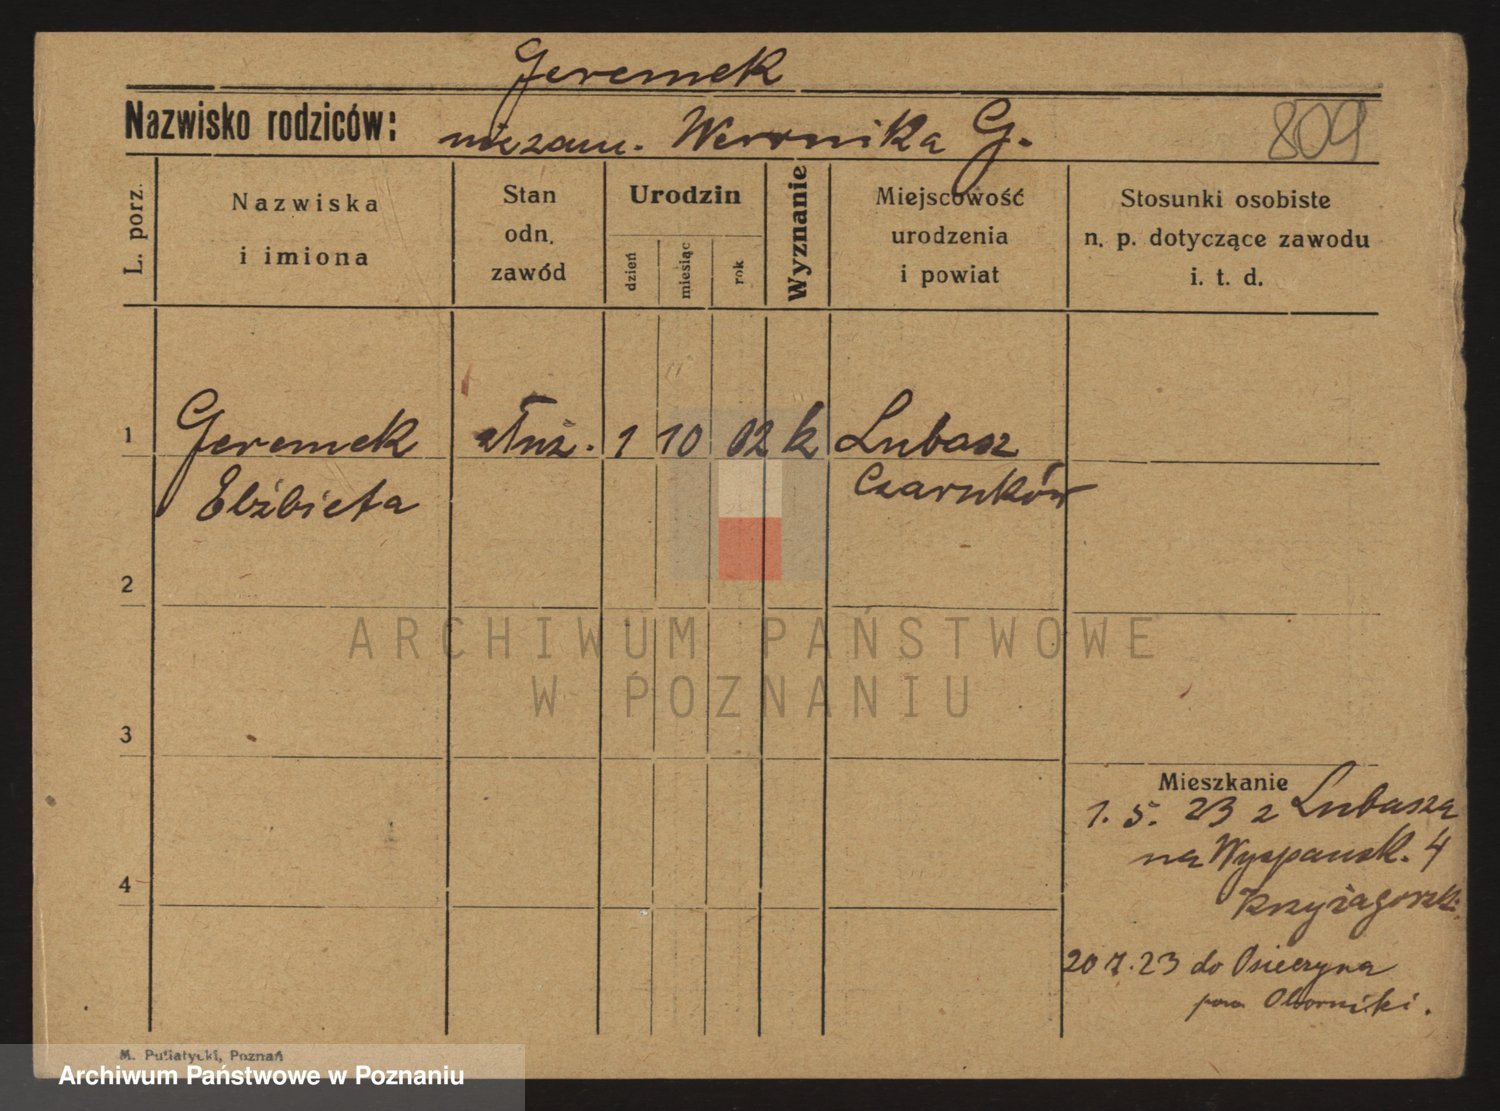 Geremek
Nazwisko rodziców: niezam. Weronika G.
809
L. porz.
Nazwiska
i imiona
Stan
odn.
zawód
Urodzin
dzień
miesiąc
rok
Wyznanie
Miejscowość
urodzenia
i powiat
Stosunki osobiste
n. p. dotyczące zawodu
i. t. d.
1 Geremek służ. 1 10 02 k Lubasz
Elżbieta Czarnków
2
ARCHIWUM PAŃSTWOWE
W POZNANIU
3
Mieszkanie
1. 5. 23 z Lubasza
na Wyspańsk. 4
4
20 7. 23 do
pow Oborniki.
M. Putiatycki, Poznań
Archiwum Państwowe w Poznaniu